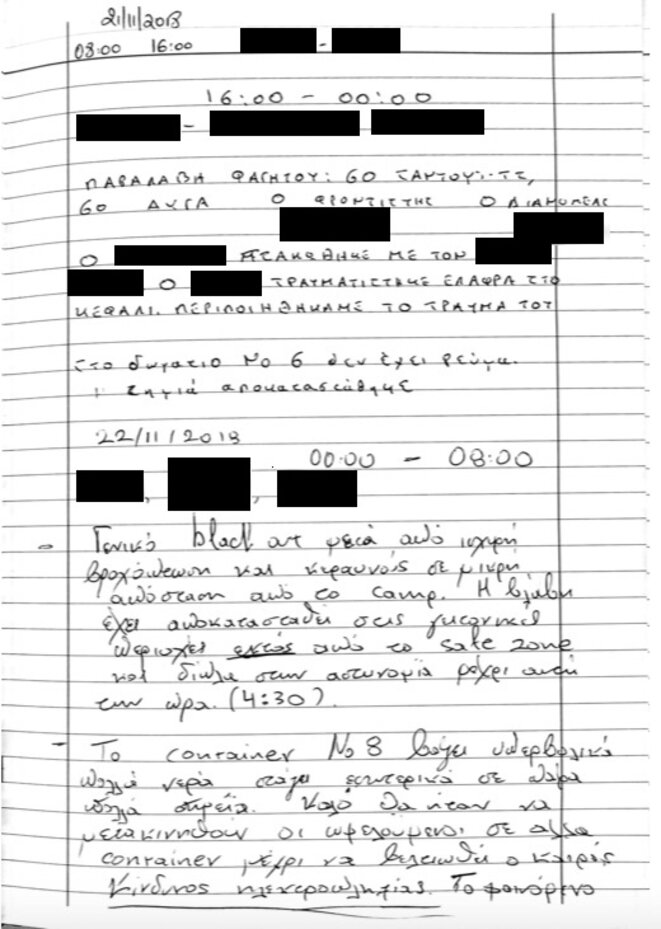 21/11/2018
08:00 16:00 -
16:00 - 00:00
-
ΠΑΡΑΛΑΒΗ ΦΑΓΗΤΟΥ: 60 ΣΑΝΤΟΥΙΤΣ,
60 ΑΥΓΑ Ο ΦΡΟΝΤΙΣΤΗΣ Ο ΔΙΑΝΟΜΕΑΣ
Ο ΤΣΑΚΩΘΗΚΕ ΜΕ ΤΟΝ
Ο ΤΡΑΥΜΑΤΙΣΤΗΚΕ ΕΛΑΦΡΑ ΣΤΟ
ΚΕΦΑΛΙ. ΠΕΡΙΠΟΙΗΘΗΚΑΜΕ ΤΟ ΤΡΑΥΜΑ ΤΟΥ
Στο δωματιο Νο 6 δεν έχει ρεύμα.
ζημιά αποκαταστάθηκε
22/11/2018
00:00 - 08:00
, ,
- Γενικό black out μετά από ισχυρή
βροχόπτωση και κεραυνούς σε μικρή
απόσταση από το camp. Η βλάβη
έχει αποκατασταθεί στις
περιοχές εκτός από το safe zone
και δίπλα στην αστυνομία μέχρι αυτή
την ώρα. (4:30).
- Το container Νο 8 βάζει υπερβολικά
πολλά νερά στάζει εσωτερικά σε πάρα
πολλά σημεία. Καλό θα ήταν να
μετακινηθούν οι ωφελούμενοι σε αλλα
container μέχρι να βελτιωθεί ο καιρός
Κίνδυνος ηλεκτροπληξίας. Το φαινόμενο